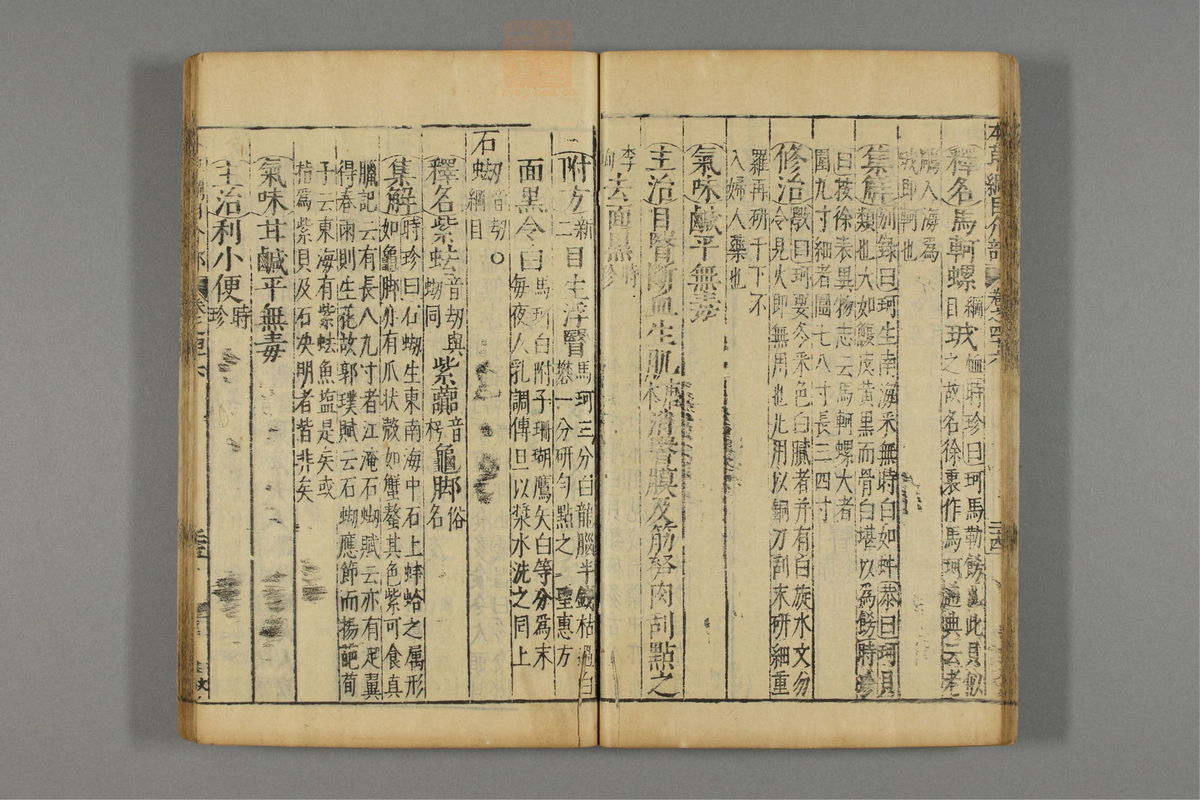 本草綱目介部 卷之四十六
釋名馬軻螺綱目㺬 時珍曰珂馬勒飾也此貝似
之故名徐表作馬珂通典云老
鵰入海為
㺬即軻也
集解別錄曰珂生南海采無時白如蚌恭曰珂貝
類也大如鰒皮黃黑而骨白堪以為飾時珍
曰按徐表異物志云馬軻螺大者
圍九寸細者圍七八寸長三四寸
修治斆曰珂要冬采色白膩者并有白旋水文勿
令見火即無用也凡用以銅刀刮末研細重
羅再研千下不
入婦人藥也
氣味鹹平無毒
主治目瞖斷血生肌 消瞖膜及筋弩肉刮點之
李珣去面黑時珍
附方新二目生浮瞖馬珂三分白龍腦半錢枯過白
礬一分研勻點之 聖惠方
面黑令白馬珂白附子珊瑚鷹矢白等分為末
每夜人乳調傅旦以漿水洗之同上
石蜐音刧○綱目
釋名紫𧉧音刧與蜐同紫蘁音枵龜脚俗名
集解時珍曰石蜐生東南海中石上蚌蛤之属形
如龜脚亦有爪状殼如蟹螯其色紫可食真
臘記云有長八九寸者江淹石蜐賦云亦有足翼
得春雨則生花故郭璞賦云石蜐應節而揚葩荀
子云東海有紫𧉧魚塩是矣或
指為紫貝及石决明者皆非矣
氣味甘鹹平無毒
主治利小便時珍